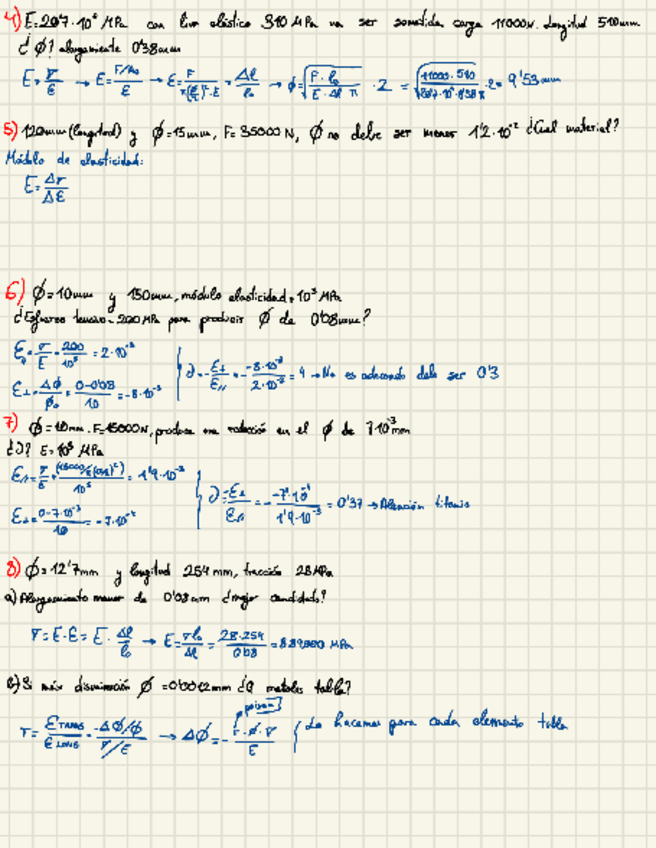 4) E=207·10³ MPa con lim elástico 310 MPa va ser sometida carga 11000N. Longitud 510mm
¿Ø? alargamiento 0'38mm
E=σ/ε → E=(F/A₀)/ε → ε=F/(π(Ø/2)²·E)=Δl/l₀ → Ø=√(F·l₀/(E·Δl·π))·2=√(11000·510/(207·10³·0'38·π))·2=9'53mm
5) 120mm (longitud) y Ø=15mm, F=35000N, Ø no debe ser menor 1'2·10⁻² ¿Cual material?
Módulo de elasticidad:
E=Δσ/Δε
6) Ø=10mm y 150mm, módulo elasticidad=10⁵ MPa
¿Esfuerzo tensor=200MPa para producir Ø de 0'08mm?
σ/E=200/10⁵=2·10⁻³
ε⊥=ΔØ/Ø₀=(0-0'08)/10=-8·10⁻³
ν=-ε⊥/ε∥=-(-8·10⁻³)/(2·10⁻³)=4→No es adecuado debe ser 0'3
7) Ø=10mm. F=15000N, produce una reducción en el Ø de 7·10⁻³mm
¿ν? E=10⁵ MPa
ε∥=σ/E=1'9·10⁻³
ε⊥=(0-7·10⁻³)/10=-7·10⁻⁴
ν=-ε⊥/ε∥=-(-7·10⁻⁴)/(1'9·10⁻³)=0'37→Aleación titanio
8) Ø=12'7mm y longitud 254mm, tracción 28MPa
a) Alargamiento menor de 0'08mm ¿mejor candidato?
σ=E·ε=E·Δl/l₀ → E=σl₀/Δl=28·254/0'08=889000 MPa
b) Si máx disminución Ø=0'0012mm ¿Q metales tabla?
poisson
r=ε TRANS/ε LONG=(-ΔØ/Ø)/(σ/E) → ΔØ=-(r·Ø·σ)/E
Lo hacemos para cada elemento tabla